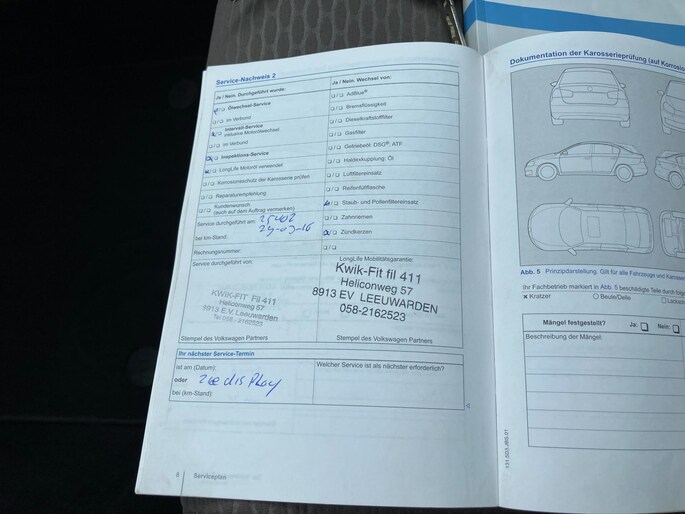 Service-Nachweis 2
Ja / Nein. Durchgeführt wurde:
Ölwechsel-Service
im Verbund
Intervall-Service
inklusive Motorölwechsel
im Verbund
Inspektions-Service
LongLife Motoröl verwendet
Korrosionsschutz der Karosserie prüfen
Reparaturempfehlung
Kundenwunsch
(auch auf dem Auftrag vermerken)
Service durchgeführt am:
bei km-Stand:
Rechnungsnummer:
Service durchgeführt von:
KWIK-FIT Fil 411
Heliconweg 57
8913 E.V. Leeuwarden
Tel 058-2162523
Stempel des Volkswagen Partners
Ja / Nein. Wechsel von:
AdBlue®
Bremsflüssigkeit
Dieselkraftstofffilter
Gasfilter
Getriebeöl: DSG®, ATF
Haldexkupplung: Öl
Luftfiltereinsatz
Reifenfüllflasche
Staub- und Pollenfiltereinsatz
Zahnriemen
Zündkerzen
LongLife Mobilitätsgarantie:
Kwik-Fit fil 411
Heliconweg 57
8913 EV LEEUWARDEN
058-2162523
Stempel des Volkswagen Partners
Ihr nächster Service-Termin
ist am (Datum):
oder
bei (km-Stand):
Welcher Service ist als nächster erforderlich?
8 Serviceplan
Dokumentation der Karosserieprüfung (auf Korrosio
Abb. 5 Prinzipdarstellung. Gilt für alle Fahrzeuge und Karosse
Ihr Fachbetrieb markiert in Abb. 5 beschädigte Teile durch
x Kratzer ○ Beule/Delle
Mängel festgestellt? Ja: Nein:
Beschreibung der Mängel: